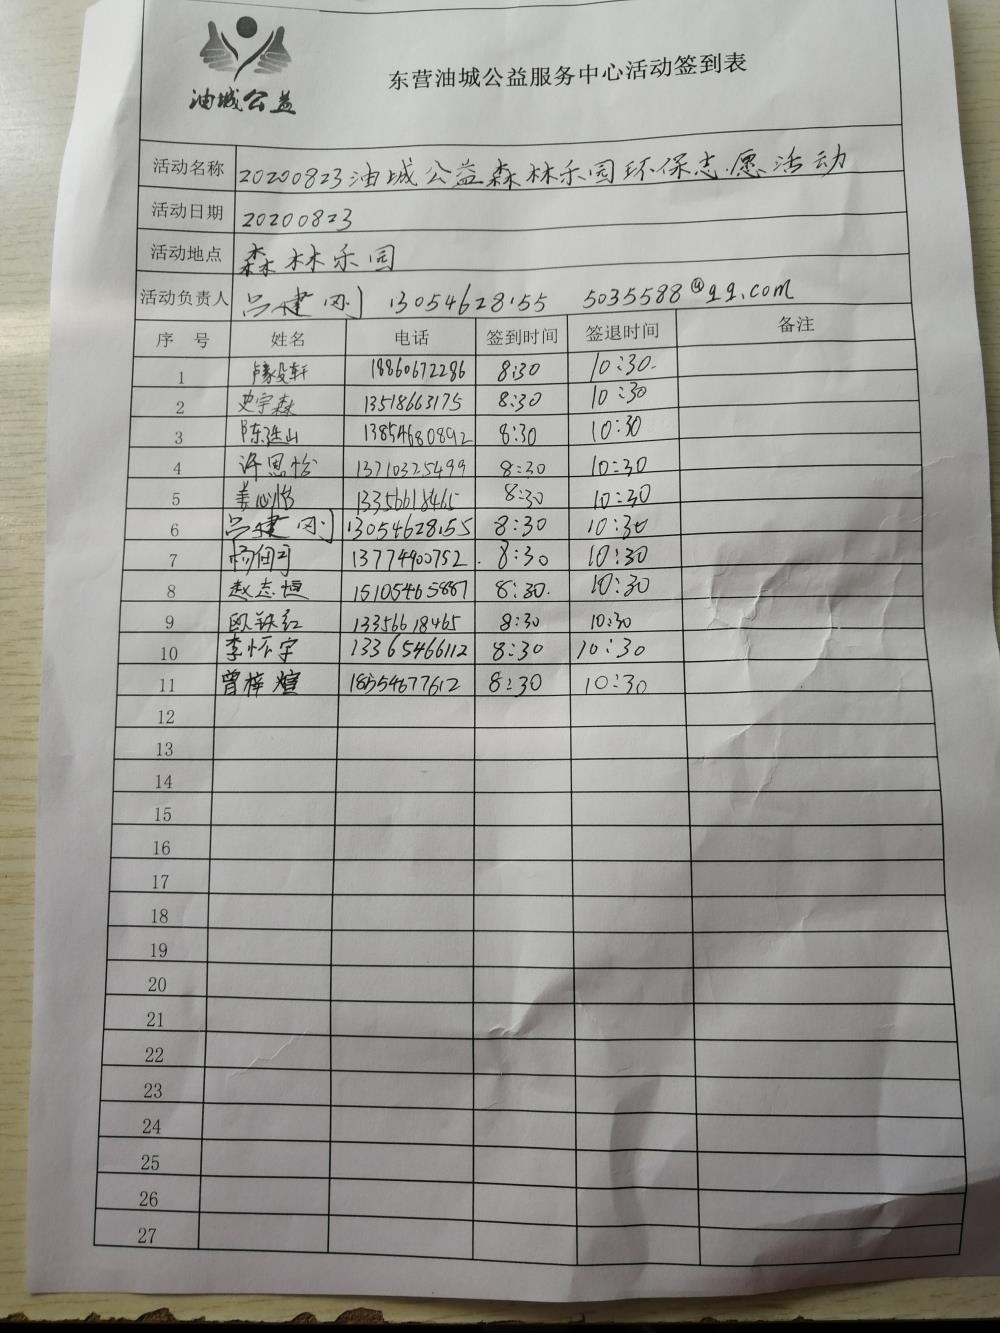 油城公益
东营油城公益服务中心活动签到表
活动名称 20200823油城公益森林乐园环保志愿活动
活动日期 20200823
活动地点 森林乐园
活动负责人 吕建刚 13054628155 5035588@qq.com
序号 姓名 电话 签到时间 签退时间 备注
1 18860672286 8:30 10:30.
2 史宇森 13518663175 8:30 10:30
3 陈连山 13854680892 8:30 10:30
4 许恩怡 13710325499 8:30 10:30
5 姜心怡 13356618465 8:30 10:30
6 吕建刚 13054628155 8:30 10:30
7 13774900752. 8:30 10:30
8 赵志恒 15105465887 8:30. 10:30
9 欧铁红 13356618465 8:30 10:30
10 李怀宇 13365466112 8:30 10:30
11 曾梓煊 18554677612 8:30 10:30
12
13
14
15
16
17
18
19
20
21
22
23
24
25
26
27